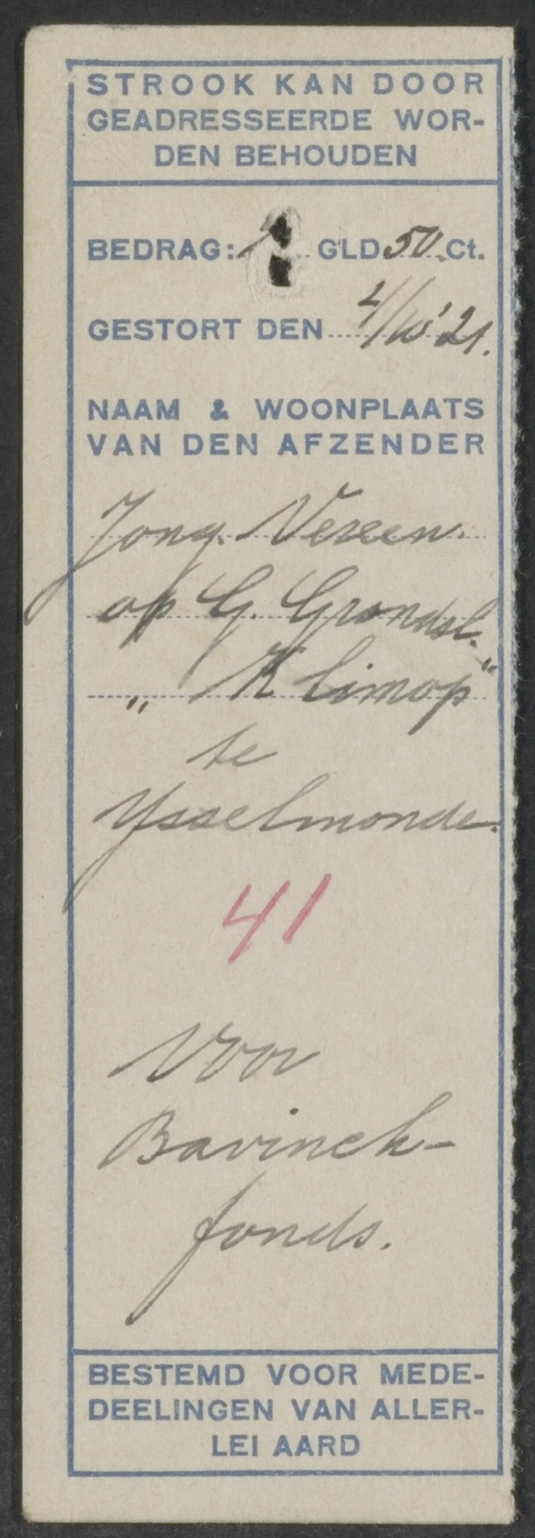 STROOK KAN DOOR
GEADRESSEERDE WOR-
DEN BEHOUDEN
BEDRAG: GLD 50 Ct.
GESTORT DEN 4/10 '21.
NAAM & WOONPLAATS
VAN DEN AFZENDER
Jong. Vereen.
op G. Grondsl.
„ Klimop"
te
Ysselmonde.
41
Voor
Bavinck-
fonds.
BESTEMD VOOR MEDE-
DEELINGEN VAN ALLER-
LEI AARD